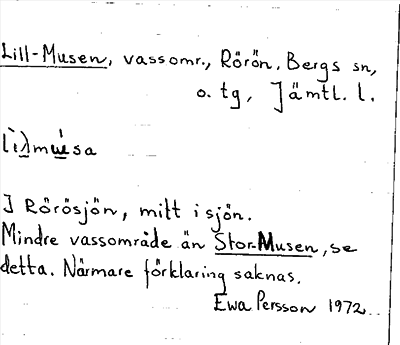 Lill-Musen, vassomr., Rörön, Bergs sn,
o. tg, Jämtl. l.
I Rörösjön, mitt i sjön.
Mindre vassområde än Stor-Musen, se
detta. Närmare förklaring saknas.
Ewa Persson 1972